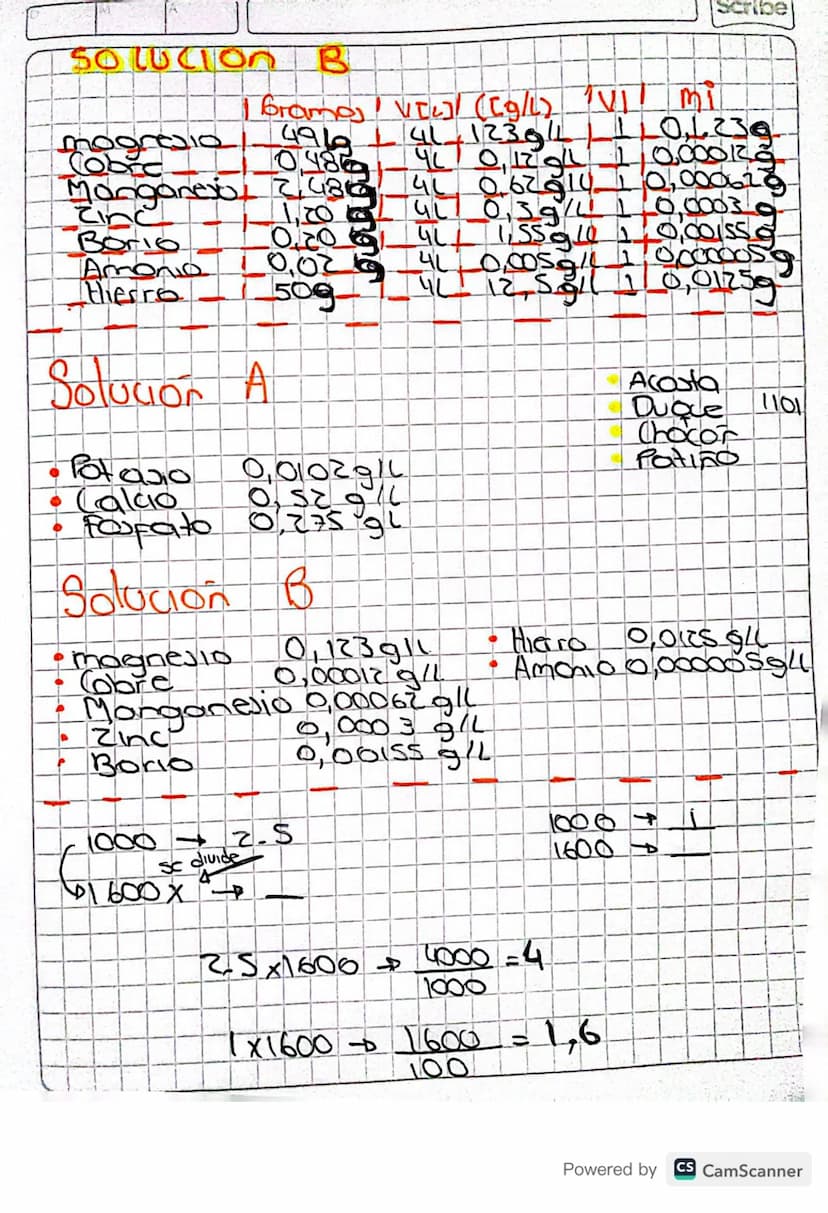 Scribe
SOLUCION B
Gramos V[L] (Cg/L) V1 mi
magnesio 491g 4L 123g/L 1 0,123g
Cobre 0,48g 4L 0,12g/L 1 0,00012g
Manganesio 2,48g 4L 0,62g/L 1 0,00062g
Zinc 1,20g 4L 0,3g/L 1 0,0003g
Borio 0,20g 4L 1,55g/L 1 0,00155g
Amonio 0,02g 4L 0,005g/L 1 0,000005g
Hierro 50g 4L 12,5g/L 1 0,0125g
Solución A
• Acosta
• Duque 1101
• Chocor
• Patiño
• Potasio 0,0102g/L
• Calcio 0,52 g/L
• Fosfato 0,275 gL
Solución B
• magnesio 0,123g/L • Hierro 0,0125 g/L
• Cobre 0,00012 g/L • Amonio 0,000005g/L
• Manganesio 0,00062 g/L
• Zinc 0,0003 g/L
• Borio 0,00155 g/L
1000 → 2.5 1000 → 1
se divide
1600 x → __ 1600 → __
2.5 x1600 → 4000/1000 = 4
1x1600 → 1600/100 = 1,6
Powered by CS CamScanner